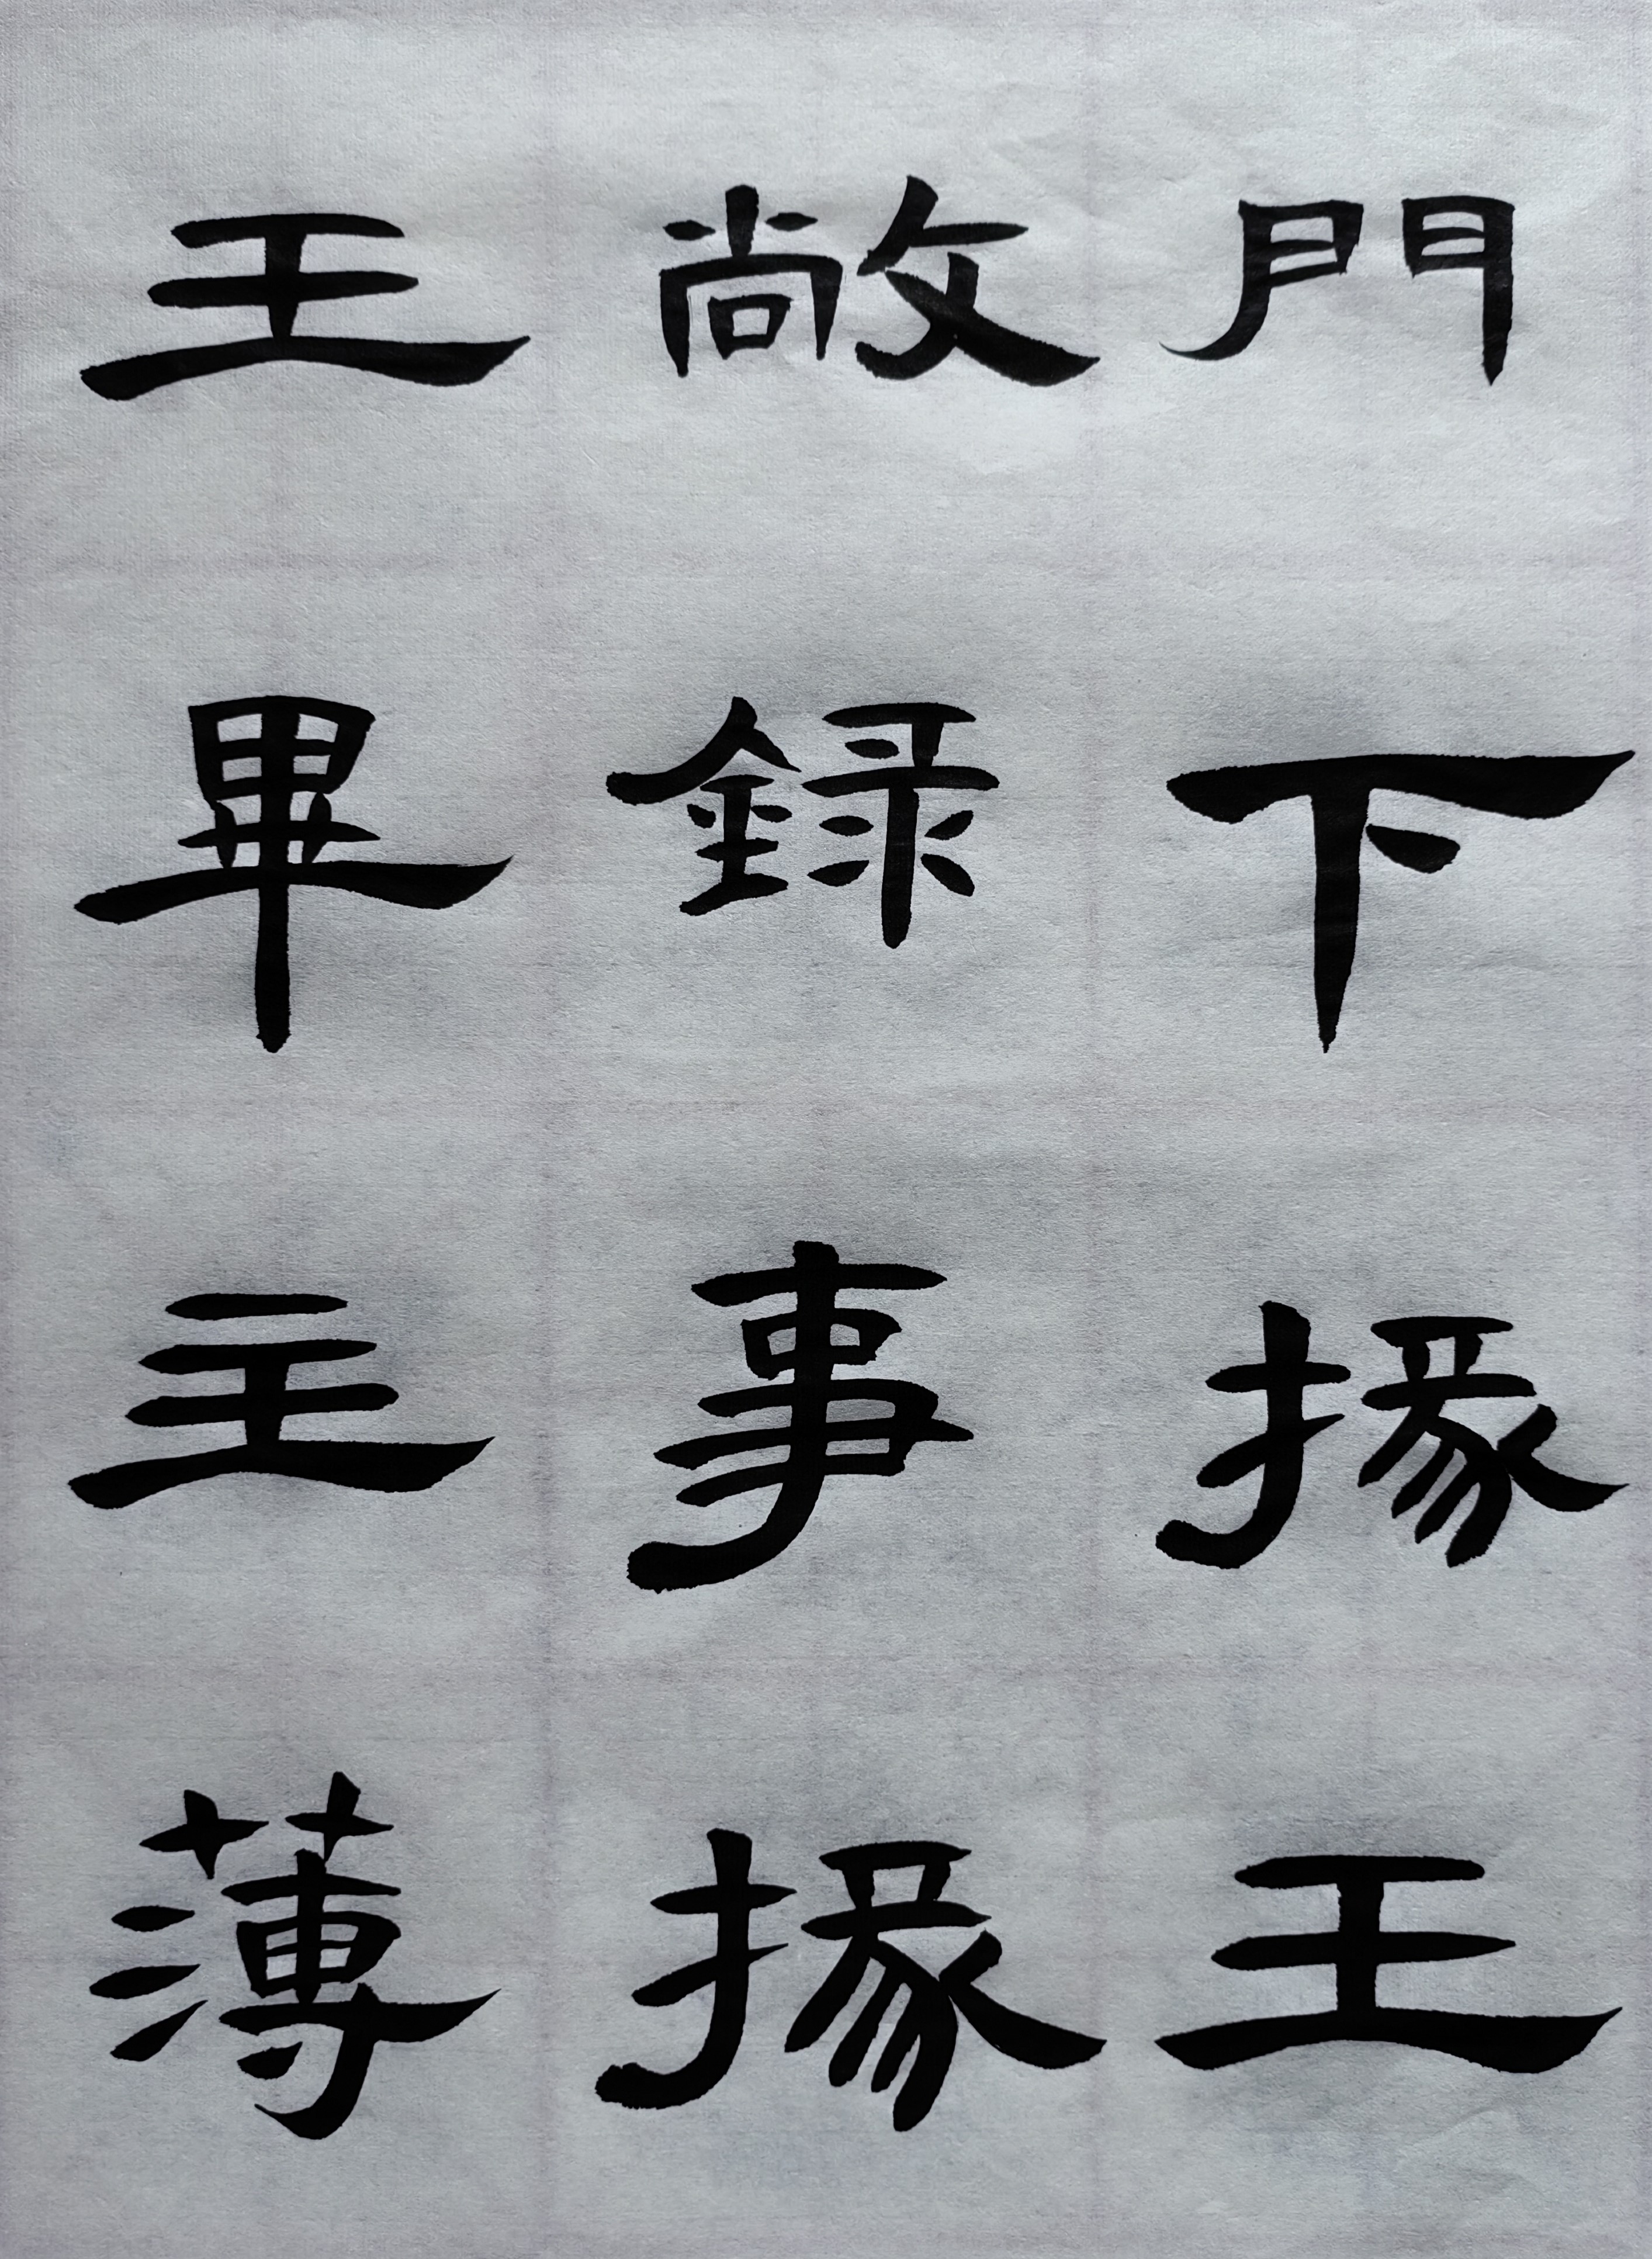 門下掾王
敞錄事掾
王畢主薄